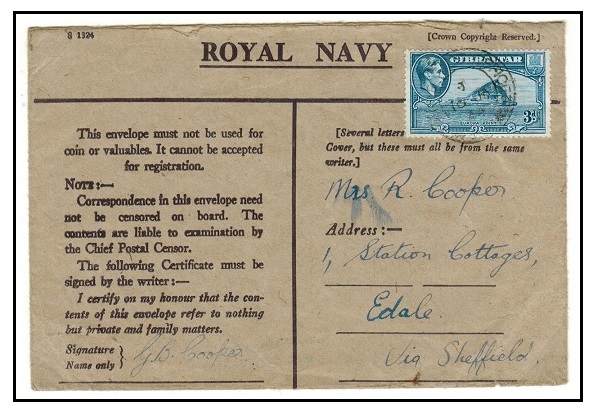 S 1324
[Crown Copyright Reserved.]
ROYAL NAVY
GIBRALTAR
3d
This envelope must not be used for
coin or valuables. It cannot be accepted
for registration.
NOTE:—
Correspondence in this envelope need
not be censored on board. The
contents are liable to examination by
the Chief Postal Censor.
The following Certificate must be
signed by the writer:—
I certify on my honour that the con-
tents of this envelope refer to nothing
but private and family matters.
Signature
Name only } G.D. Cooper
[Several letters
Cover, but these must all be from the same
writer.]
Mrs R. Cooper
Address:—
1, Station Cottages,
Edale.
Via Sheffield.